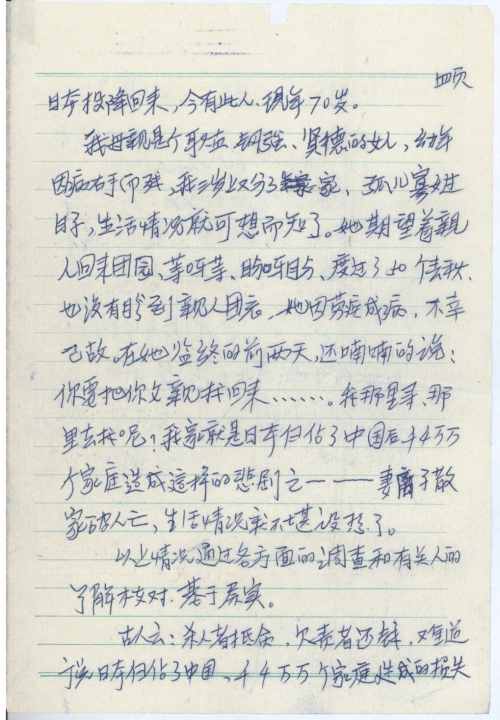 四页
日本投降回来，今有此人、现年70岁。
我母亲是个耿直、钢强、贤德的女人，幼年
因病右手 残，我三岁上又分了家，孤儿寡女过
日子，生活情况就可想而知了。她期望着亲
人回来团园、等呀等、盼呀盼、度过了50个春秋
也没有盼到亲人团 ，她因劳疾成病，不幸
已故。在她监终的前两天，还喃喃的说：
你要把你父亲找回来……。我那里寻、那
里去找呢？我家就是日本侵占了中国后千千万万
个家庭造成这样的悲剧之一——妻离子散
家破人亡，生活情况 不堪设想了。
以上情况通过各方面的调查和有关人的
了解核对、基于属实。
古人云：杀人者抵命，欠债者还钱，难道
说日本侵占了中国、千千万万个家庭造成的损失